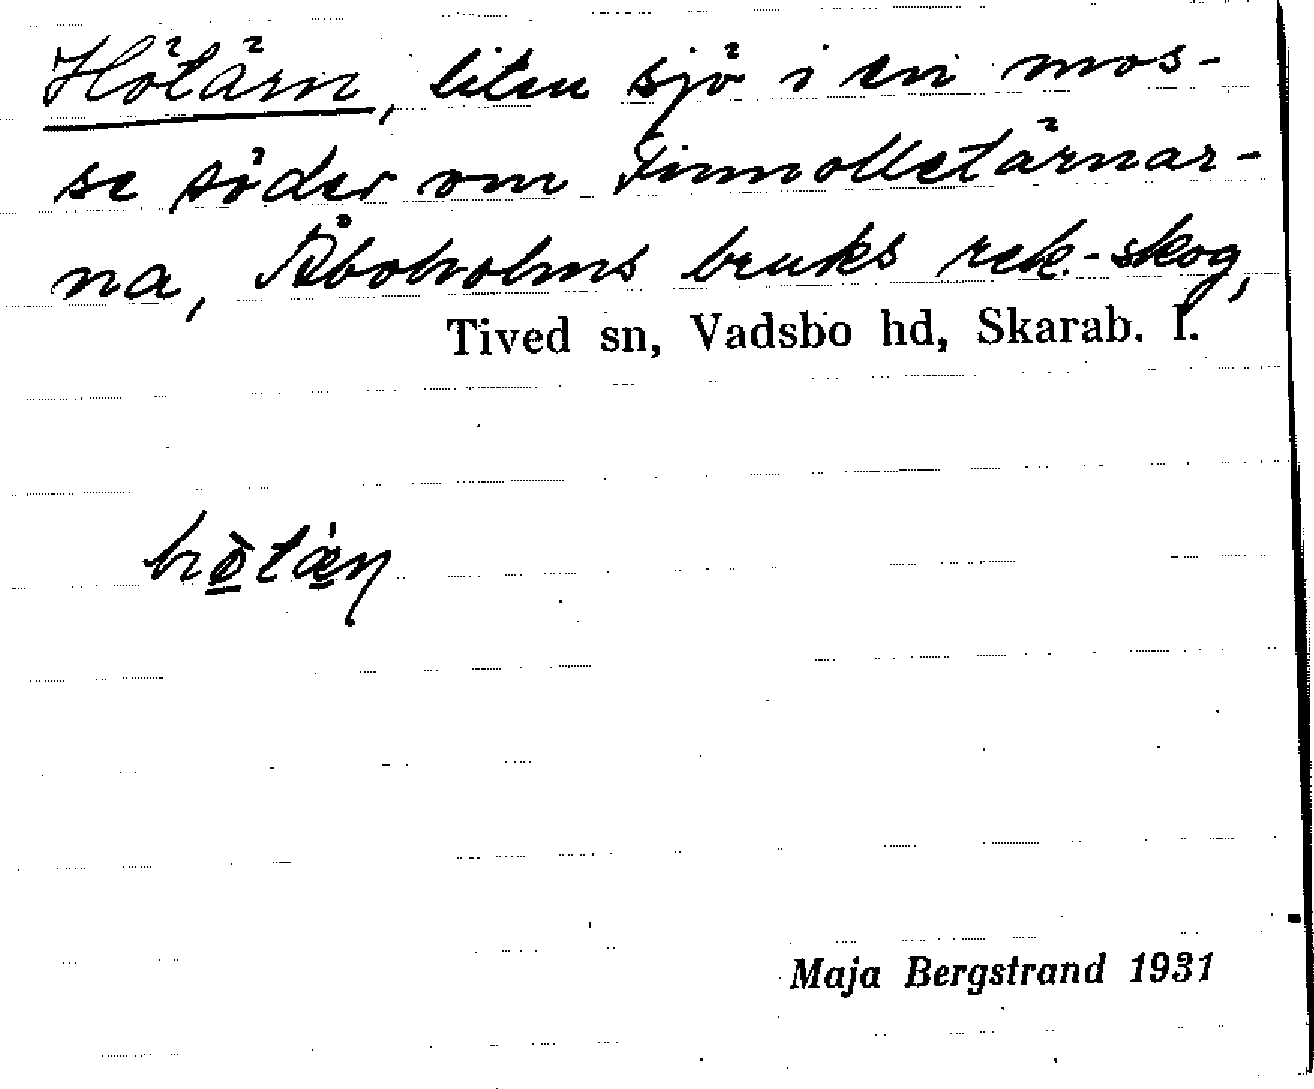 Hötärn, liten sjö i en mos-
se söder om Finnolletärnar-
na, Åboholms bruks rek.-skog,
Tived sn, Vadsbo hd, Skarab. l.
hö̀tǽn
Maja Bergstrand 1931